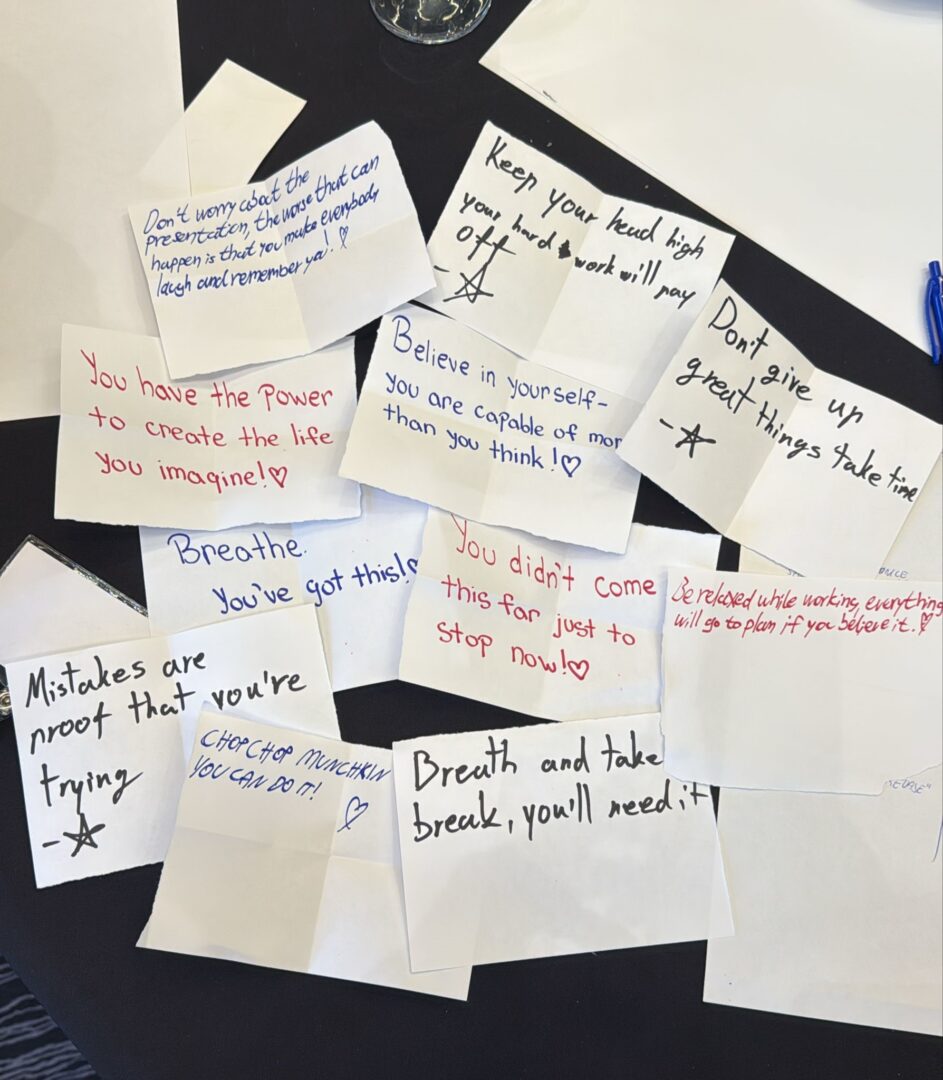 Don't worry about the
presentation, the worse that can
happen is that you make everybody
laugh and remember ya! ♡
Keep your head high
your hard work will pay
off
- ☆
Don't give up
great things take time
- ☆
You have the Power
to create the life
you imagine! ♡
Believe in yourself-
you are capable of mor
than you think! ♡
Breathe.
You've got this! ♡
You didn't come
this far just to
stop now! ♡
Be relaxed while working, everything
will go to plan if you believe it. ♡
Mistakes are
proof that you're
trying
- ☆
CHOP CHOP MUNCHKIN
YOU CAN DO IT!
♡
Breath and take
break, you'll need it